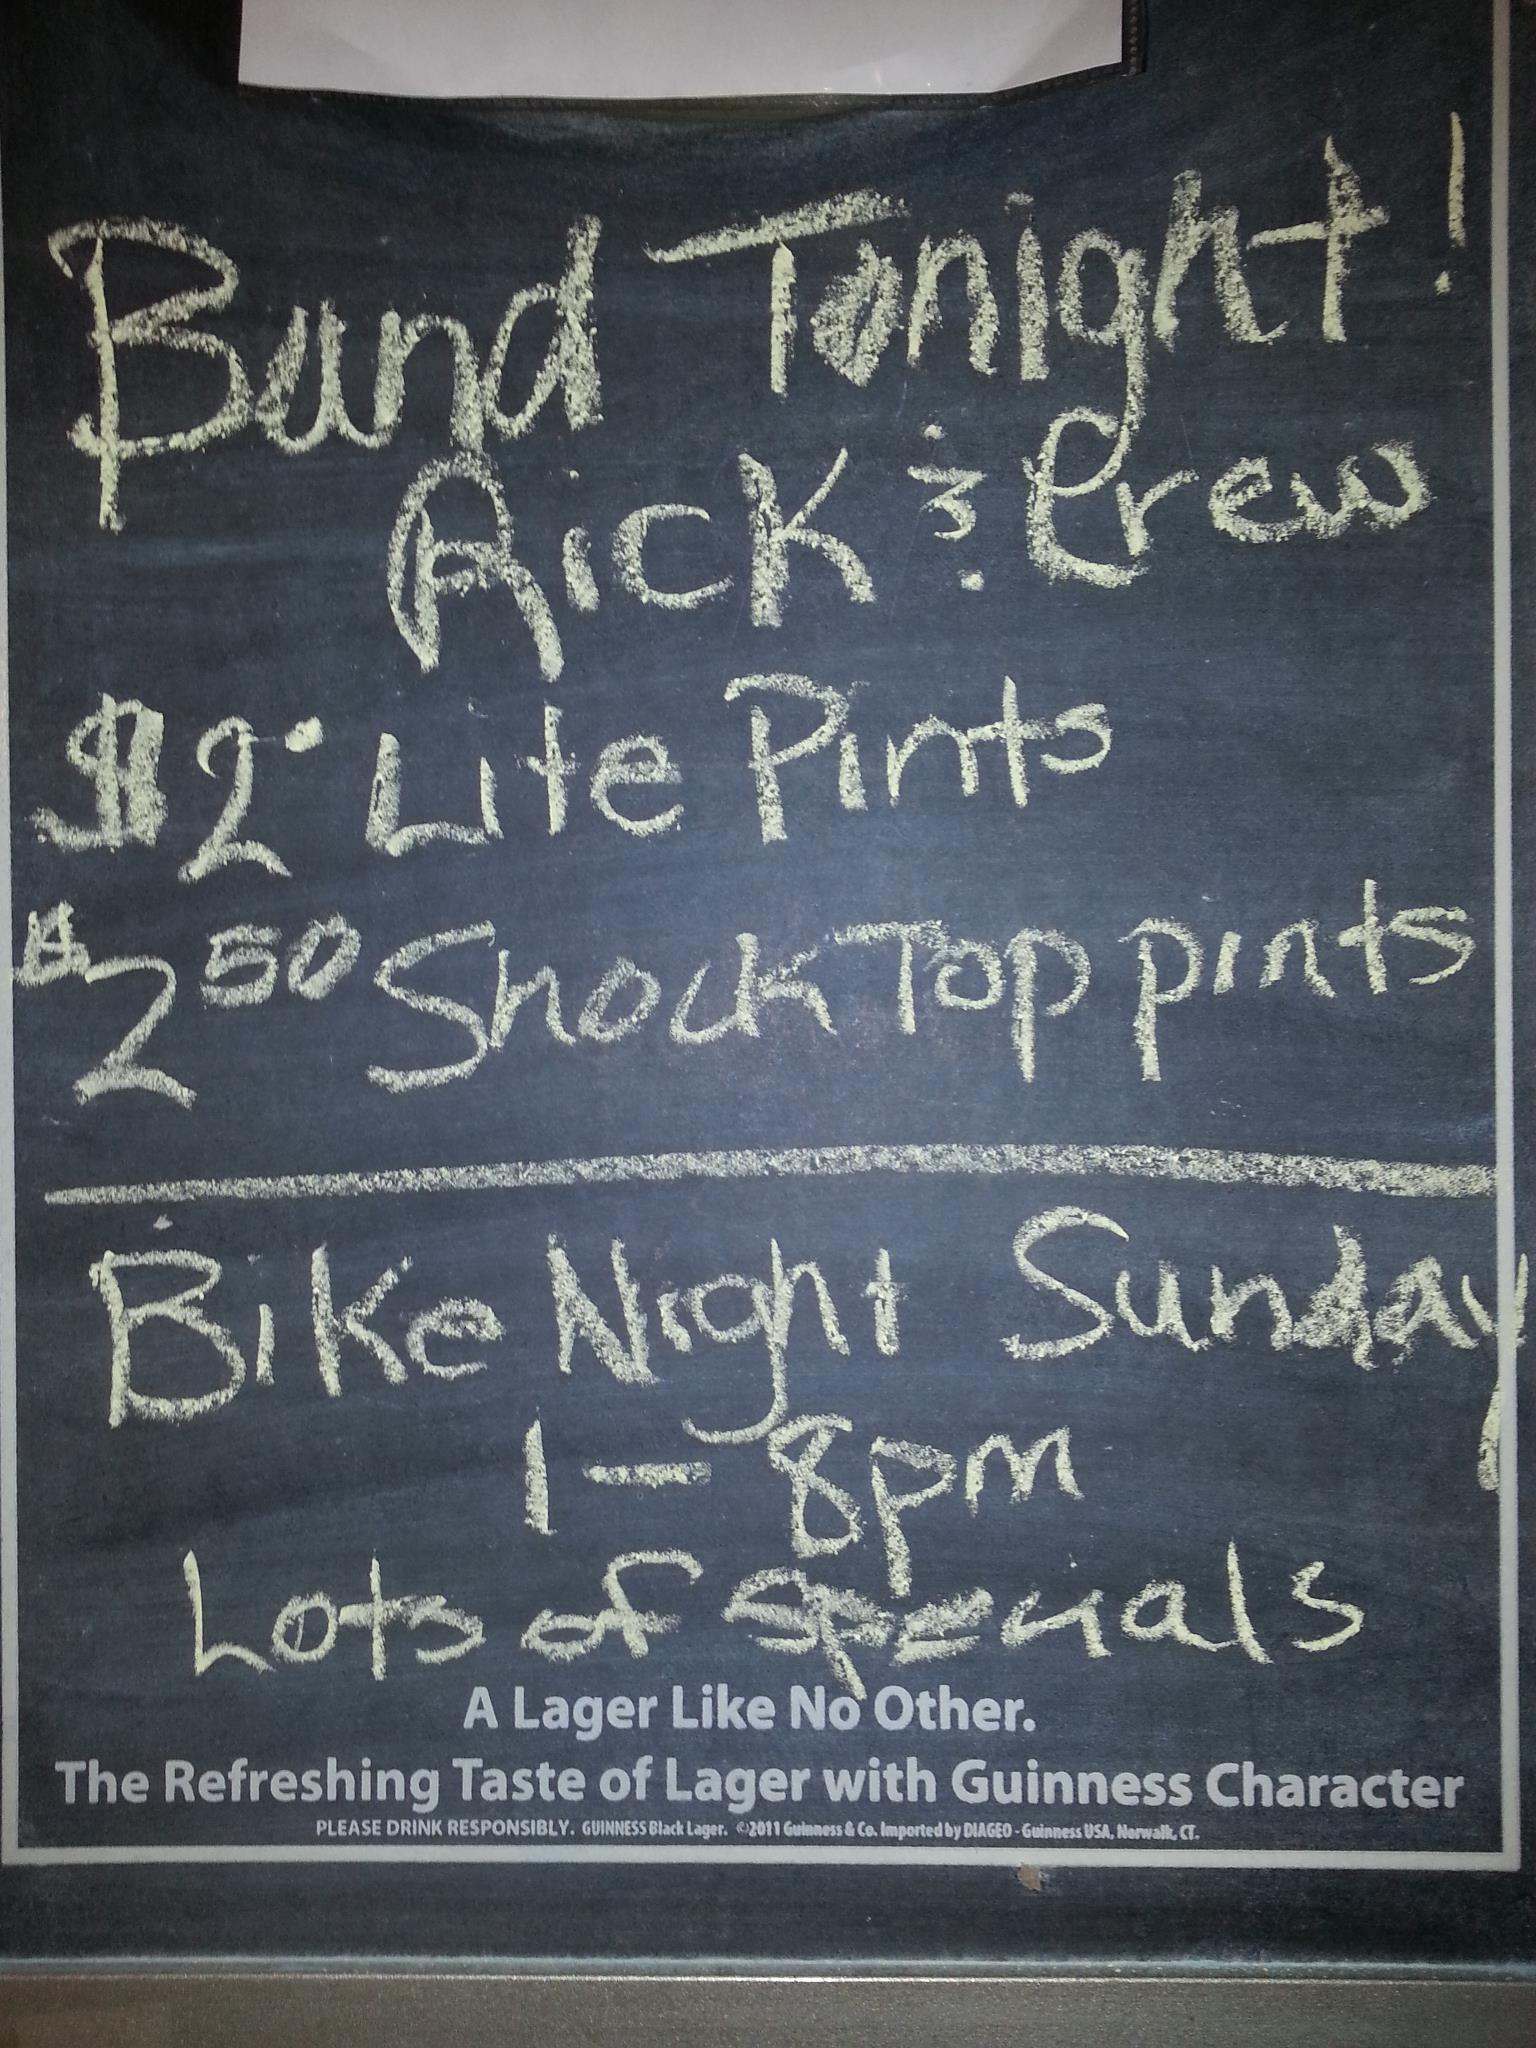 Band Tonight!
Rick & Crew
$2. Lite Pints
$2 50 Shock Top pints
Bike Night Sunday
1 - 8pm
Lots of Specials
A Lager Like No Other.
The Refreshing Taste of Lager with Guinness Character
PLEASE DRINK RESPONSIBLY. GUINNESS Black Lager. ©2011 Guinness & Co. Imported by DIAGEO - Guinness USA, Norwalk, CT.